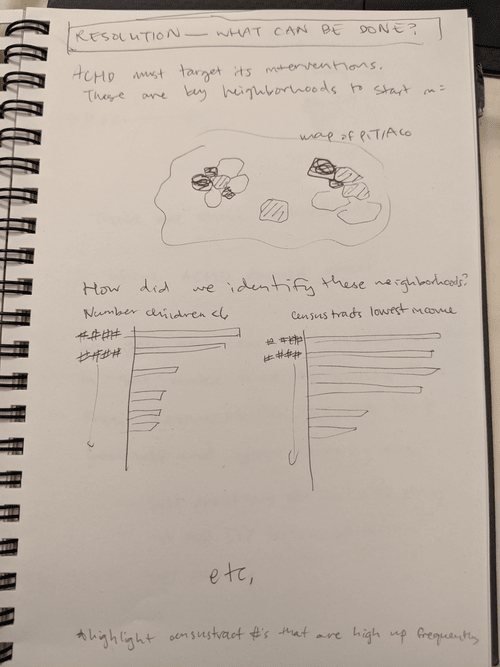 RESOLUTION — WHAT CAN BE DONE?
ACHD must target its interventions.
These are key neighborhoods to start in:
map of PIT/ACo
How did we identify these neighborhoods?
Number children <6
census tracts lowest income
#### 
####
# ###
# ###
etc,
*highlight census tract #'s that are high up frequently